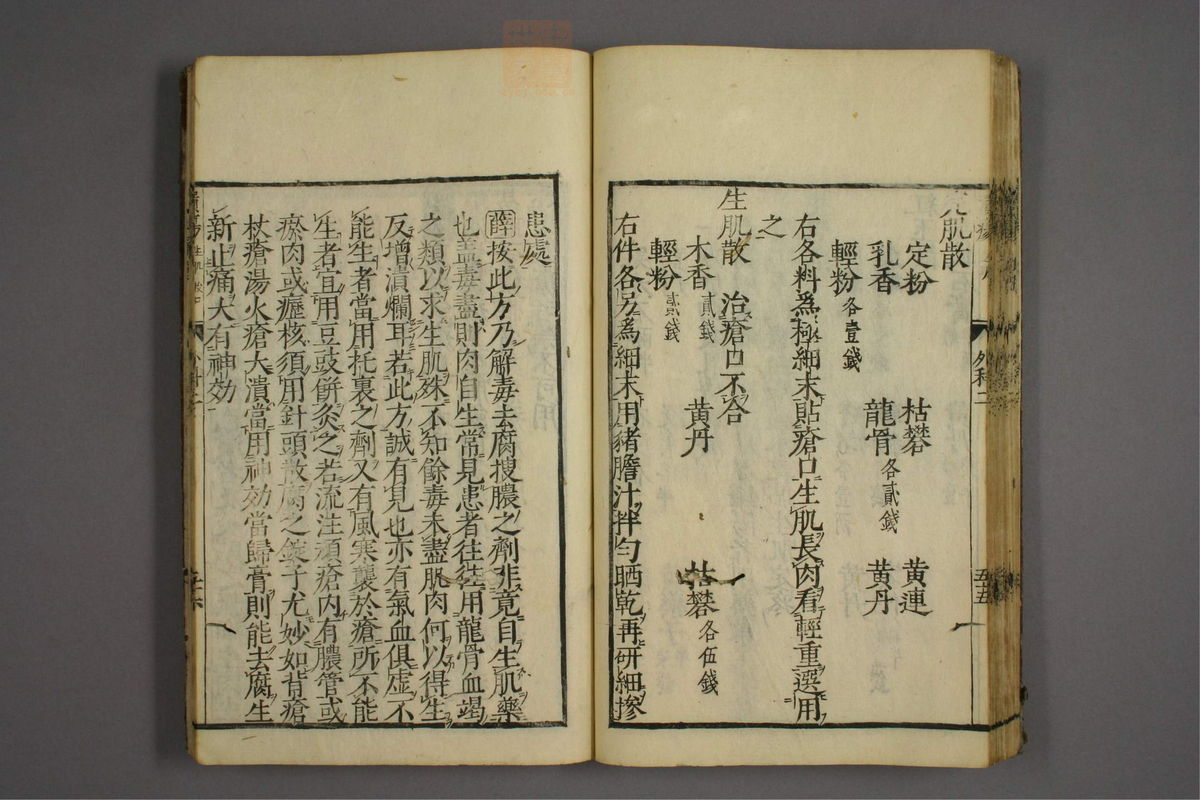 肌散
定粉　枯礬　黄連
乳香　龍骨各貳錢　黄丹
輕粉各壹錢
右各料爲極細末貼瘡口生肌長肉看輕重選用
之
生肌散　治瘡口不合
木香貳錢　黄丹　枯礬各伍錢
輕粉貳錢
右件各另爲細末用猪膽汁拌匀晒乾再研細摻
患處
薛按此方乃解毒去腐搜膿之劑非竟自生肌藥
也盖毒盡則肉自生常見患者往往用龍骨血竭
之類以求生肌殊不知餘毒未盡肌肉何以得生
反增潰爛耳若此方誠有見也亦有氣血俱虚不
能生者當用托裏之劑又有風寒襲於瘡所不能
生者宜用豆豉餅灸之若流注頑瘡内有膿管或
瘀肉或癧核須用針頭散腐之錠子尤妙如背瘡
杖瘡湯火瘡大潰當用神効當歸膏則能去腐生
新止痛大有神効
外科二
五十五